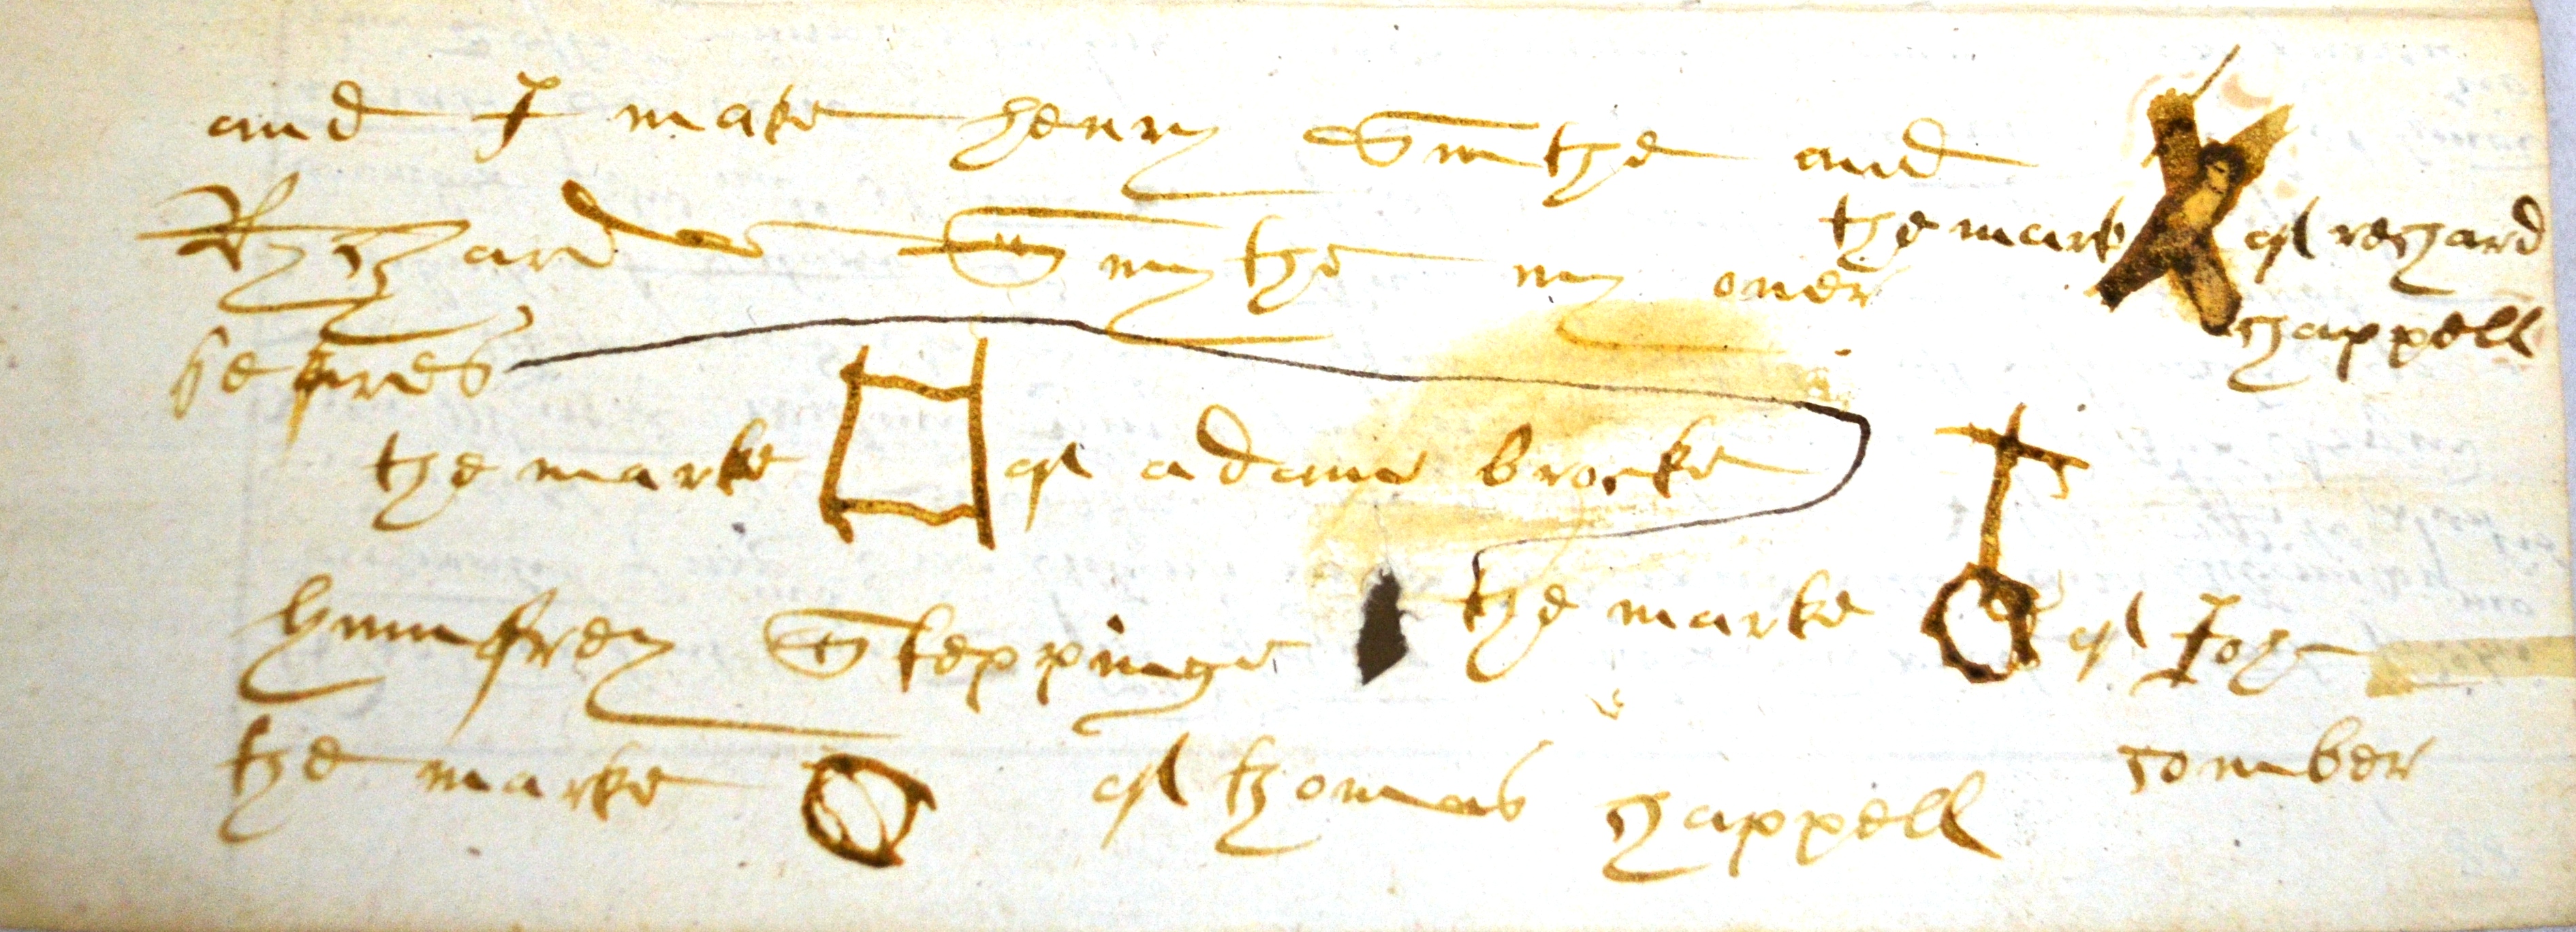 and I make henry Smithe and
Rychard Smythe my over
sepres
the mark of rechard
chappell
the marke of adame brocke
humfrey Steppinge
the marke of Iohn
comber
the marke of thomas chappell